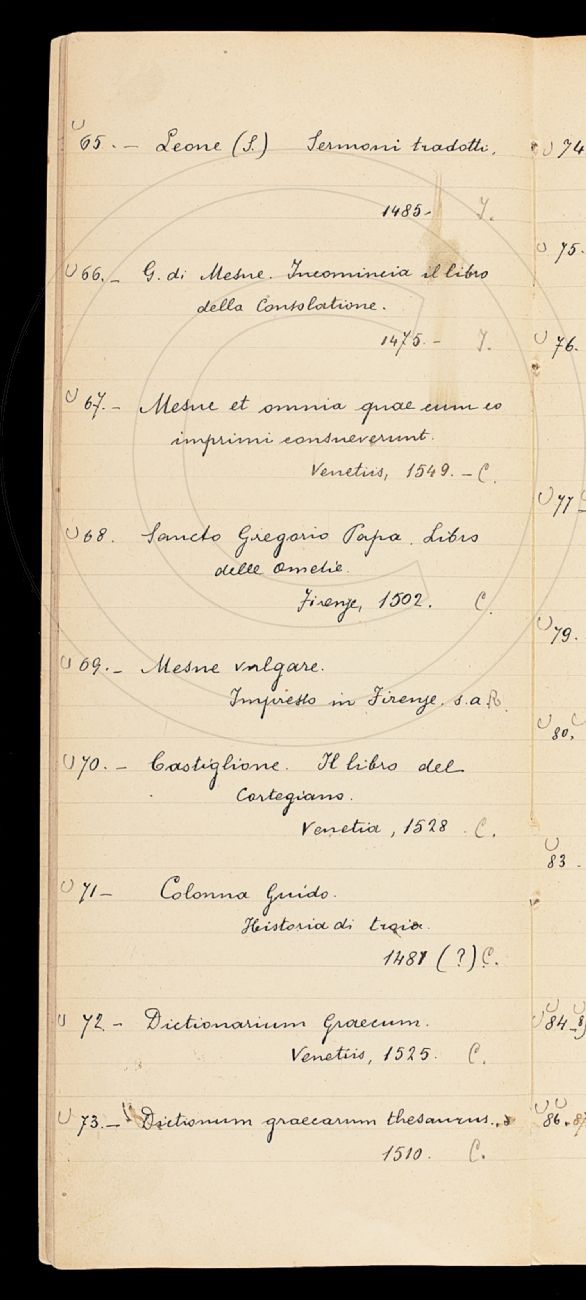 65. – Leone (S.) Sermoni tradotti.
1485- I.
66. – G. di Mesue. Incomincia il libro
della Consolatione.
1475. – I.
67. – Mesue et omnia quae cum eo
imprimi consueverunt.
Venetiis, 1549. – C.
68. Sancto Gregorio Papa. Libro
delle Omelie.
Firenze, 1502. C.
69. – Mesue vulgare.
Impresso in Firenze. s.a.
70. – Castiglione. Il libro del
Cortegiano.
Venetia, 1528. C.
71 – Colonna Guido.
Historia di troia.
1481 (?) C.
72 – Dictionarium Graecum.
Venetiis, 1525. C.
73. – Dictionum graecarum thesaurus.
1510. C.
74
75.
76.
77
79.
80.
83.
84-8
86.87